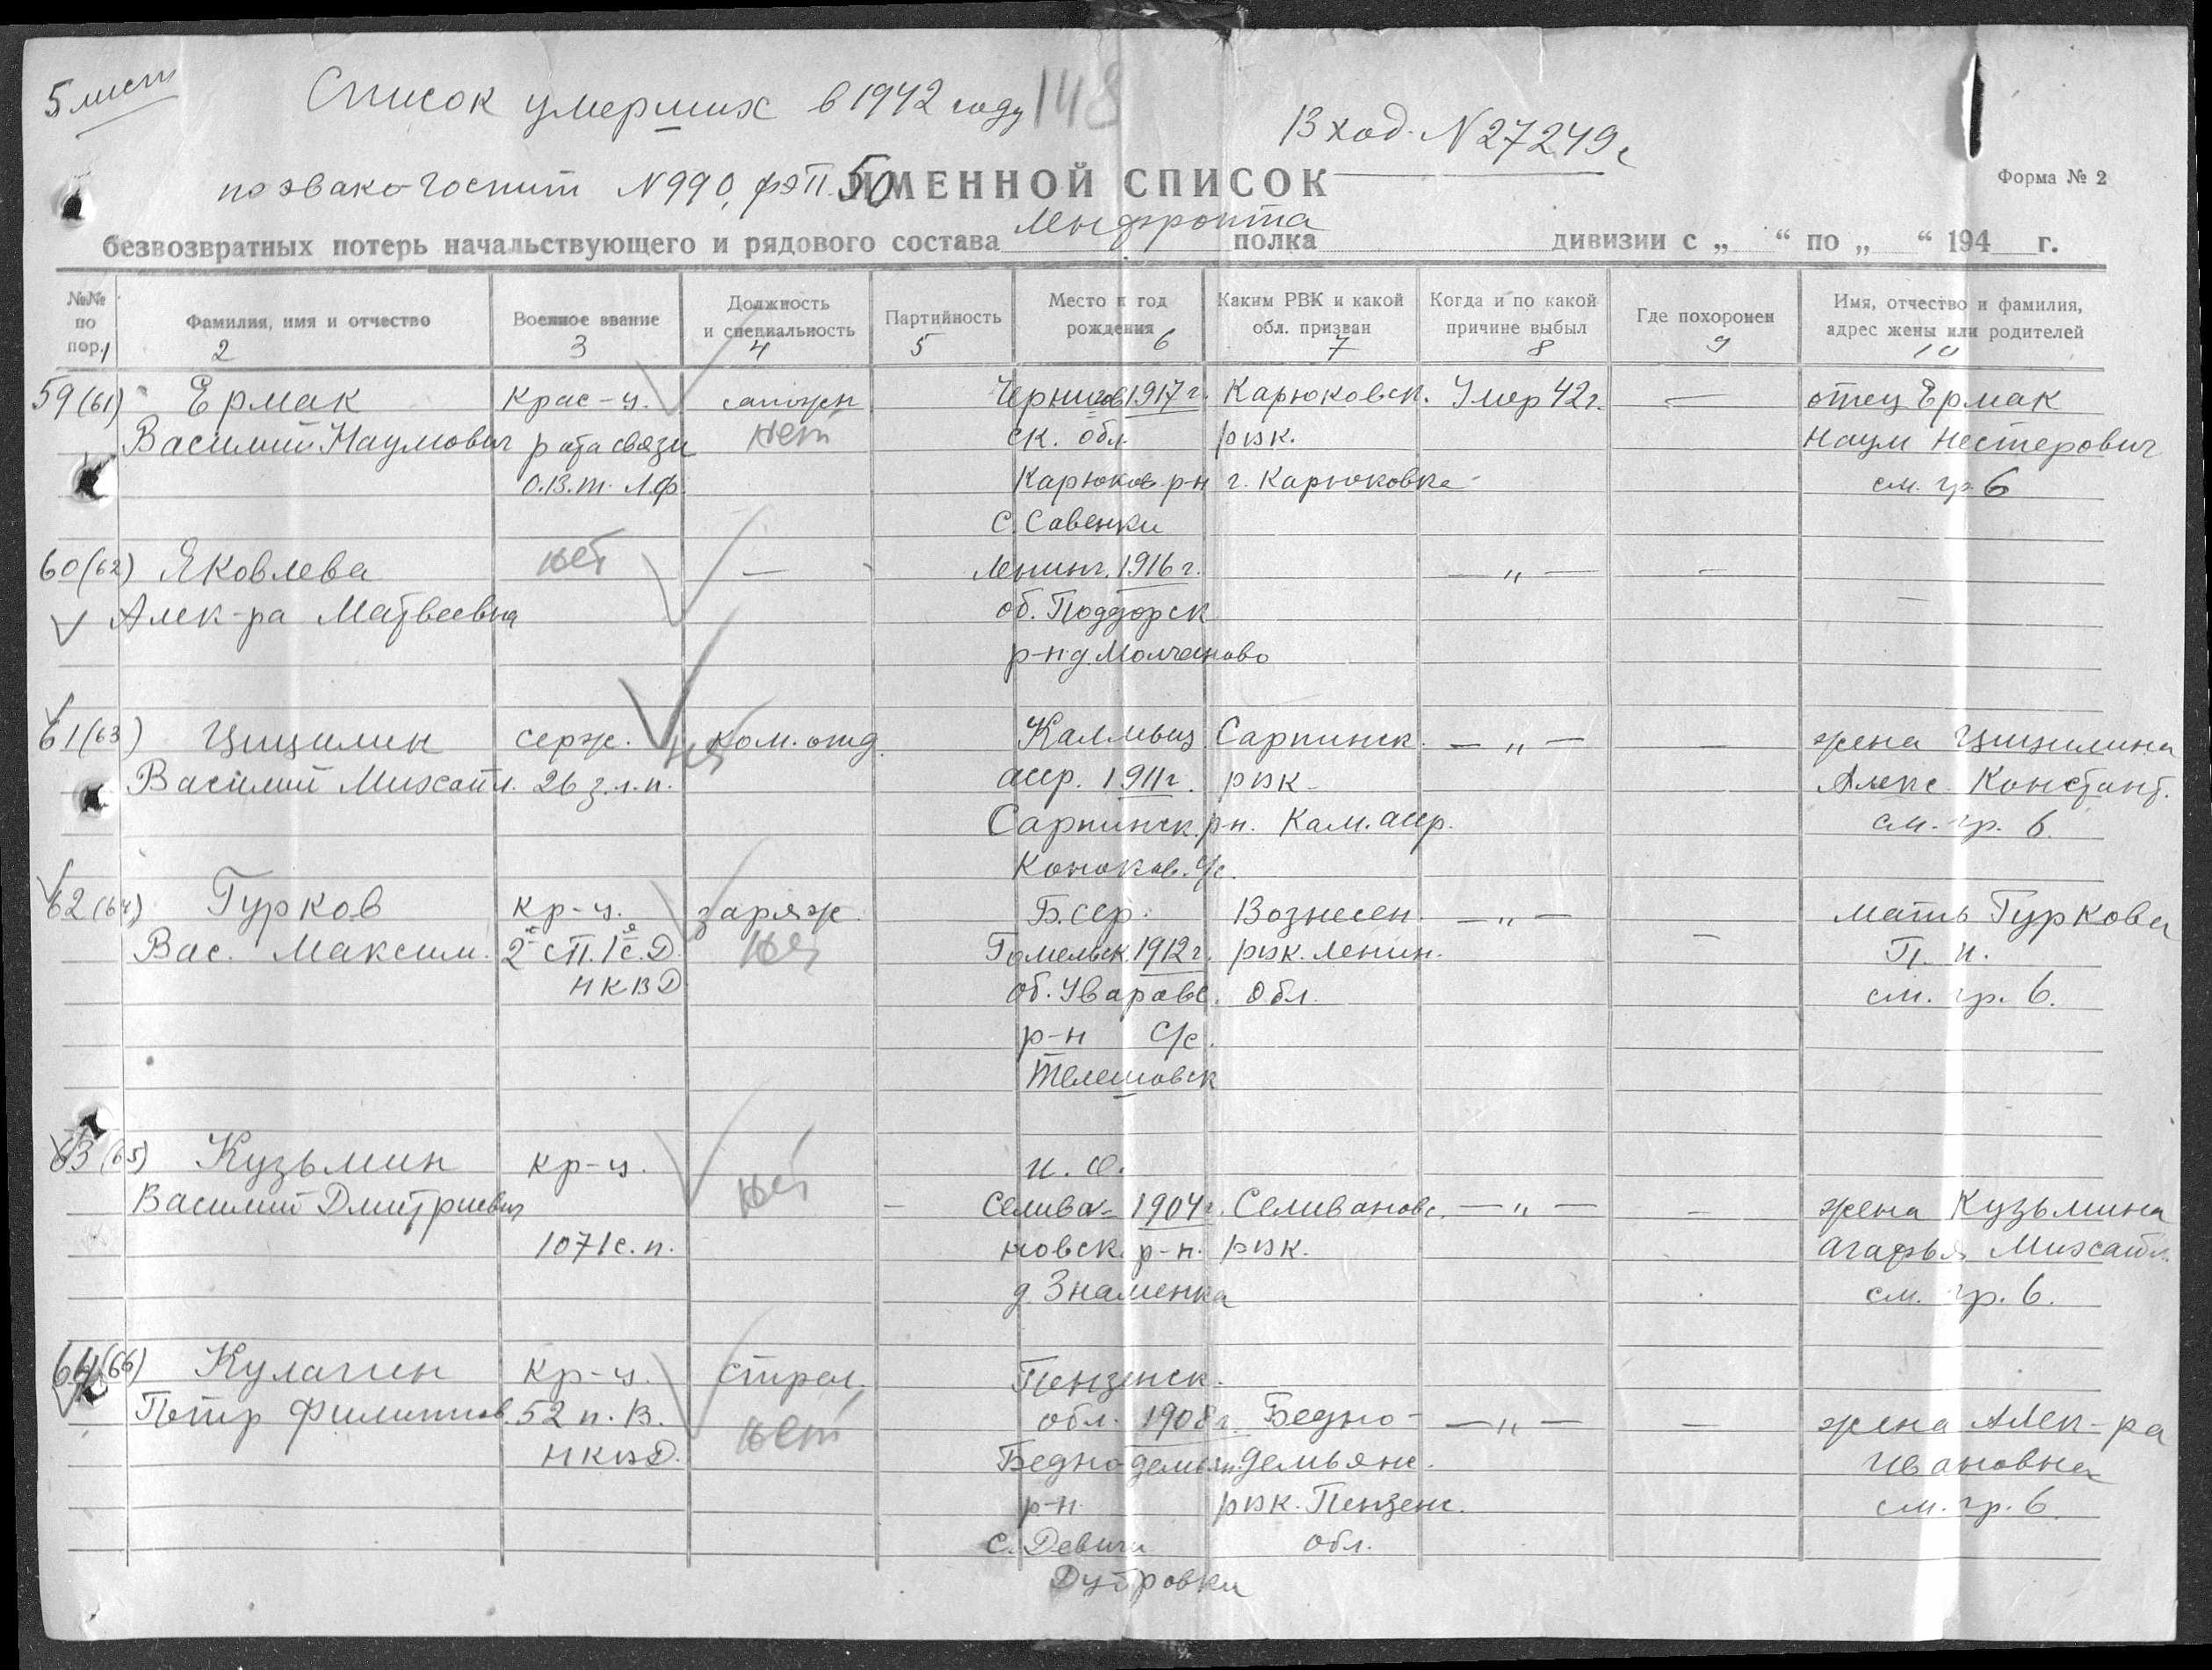 5 лист
Список умерших в 1942 году 148
Вход. N 27249с
по эвако-госпит N 990, фэп. 50
ИМЕННОЙ СПИСОК
Форма № 2
Ленфронта
безвозвратных потерь начальствующего и рядового состава полка дивизии с „ “ по „ “ 194 г.
№№ по пор. 1
Фамилия, имя и отчество 2
Военное звание 3
Должность и специальность 4
Партийность 5
Место и год рождения 6
Каким РВК и какой обл. призван 7
Когда и по какой причине выбыл 8
Где похоронен 9
Имя, отчество и фамилия, адрес жены или родителей 10
59 (61) Ермак Крас-ц. сапожн Чернигов 1917 г. Карюковск. Умер 42 г. — отец Ермак
Василий Наумович рота связи нет ск. обл. рвк. Наум Нестерович
О.В.т. Л.ф. Карюков. р-н г. Карюковка см. гр. 6
с. Савенки
60 (62) Яковлева нет — Ленинг. 1916 г. — „ — —
Алек-ра Матвеевна об. Поддорск —
р-н д. Молчаново
61 (63) Цицилин серж. ком. отд. Калмыц. Сарпинск. — „ — — жена Цицилина
Василий Михайл. 26 з.л.п. нет асср. 1911 г. рвк Алекс. Констант.
Сарпинск. р-н. Кал. асср. см. гр. 6.
Коноков. с/с.
62 (64) Гурков кр-ц. заряж. Б.сср. Вознесен. — „ — мать Гуркова
Вас. Максим. 2й сп. 1я с. Д. нет Гомельск. 1912 г. рвк. Ленин. — П. И.
НКВД об. Уваровс. обл. см. гр. 6.
р-н с/с.
Телешовск
63 (65) Кузьмин кр-ц. И. О.
Василий Дмитриевич нет — Селива- 1904 г. Селивановс. — „ — — жена Кузьмина
1071 с. п. новск. р-н. рвк. Агафья Михайл.
д. Знаменка см. гр. 6.
64 (66) Кулагин кр-ц. стрел. Пензенск.
Петр Филиппов. 52 п. В. нет обл. 1908 г. Бедно- — „ — — жена Алек-ра
НКВД. Беднодемьян. демьянс. Ивановна
р-н рвк. Пензенс. см. гр. 6
с. Девичи обл.
Дубровки